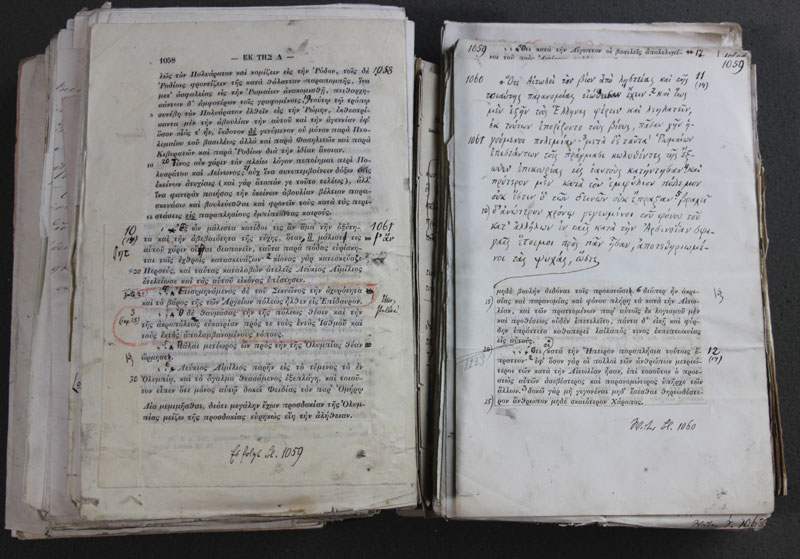 1058 — ΕΚ ΤΗΣ Λ —
λῶς τὸν Πολυάρατον καὶ κομίζειν εἰς τὴν Ῥόδον, τοῖς δὲ 1058
Ῥοδίοις φροντίζειν τῆς κατὰ θάλατταν παραπομπῆς, ἵνα
μετ' ἀσφαλείας εἰς τὴν Ῥωμαίων ἀνακομισθῇ. πειθαρχη-
σάντων δ' ἀμφοτέρων τοῖς γραφομένοις, τούτῳ τῷ τρόπῳ
συνέβη τὸν Πολυάρατον ἐλθεῖν εἰς τὴν Ῥώμην, ἐκθεατρί-
σαντα μὲν τὴν ἀβουλίαν τὴν αὑτοῦ καὶ τὴν ἀγεννίαν ἐφ'
ὅσον οἷός τ' ἦν, ἔκδοτον δὲ γενόμενον οὐ μόνον παρὰ Πτο-
λεμαίου τοῦ βασιλέως ἀλλὰ καὶ παρὰ Φασηλιτῶν καὶ παρὰ
Κιβυρατῶν καὶ παρὰ Ῥοδίων διὰ τὴν ἰδίαν ἄνοιαν.
Τίνος οὖν χάριν τὸν πλείω λόγον πεποίημαι περὶ Πο-
λυαράτου καὶ Δείνωνος; οὐχ ἵνα συνεπεμβαίνειν δόξω ταῖς
ἐκείνων ἀτυχίαις (καὶ γὰρ ἄτοπόν γε τοῦτο τελέως), ἀλλ'
ἵνα φανερὰν ποιήσας τὴν ἐκείνων ἀβουλίαν βέλτιον παρα-
σκευάσω καὶ βουλεύεσθαι καὶ φρονεῖν τοὺς κατὰ τὰς περι-
στάσεις εἰς παραπλησίους ἐμπίπτοντας καιρούς.
10 1061
(14) Ἐξ ὧν μάλιστα κατίδοι τις ἂν ἅμα τὴν ὀξύτη-
τα καὶ τὴν ἀβεβαιότητα τῆς τύχης, ὅταν ἃ μάλιστά τις
αὑτοῦ χάριν οἴεται διαπονεῖν, ταῦτα παρὰ πόδας εὑρίσκη-
ται τοῖς ἐχθροῖς κατασκευάζων· κίονας γὰρ κατεσκεύαζε
Περσεύς, καὶ ταύτας καταλαβὼν ἀτελεῖς Λεύκιος Αἰμίλιος
ἐτελείωσε καὶ τὰς αὑτοῦ εἰκόνας ἐπέστησεν.
Ἐπισημηνάμενος δὲ τοῦ Σικυῶνος τὴν ὀχυρότητα
καὶ τὸ βάρος τῆς τῶν Ἀργείων πόλεως ἦλθεν εἰς Ἐπίδαυρον.
Ὁ δὲ θαυμάσας τὴν τῆς πόλεως θέσιν καὶ τὴν
τῆς ἀκροπόλεως εὐκαιρίαν πρός τε τοὺς ἐντὸς Ἰσθμοῦ καὶ
τοὺς ἐκτὸς ἀπολαμβανομένους τόπους.
Πάλαι μετέωρος ὢν πρὸς τὴν τῆς Ὀλυμπίας θέαν
ὥρμησεν.
Λεύκιος Αἰμίλιος παρῆν εἰς τὸ τέμενος τὸ ἐν
30 Ὀλυμπίᾳ, καὶ τὸ ἄγαλμα θεασάμενος ἐξεπλάγη, καὶ τοσοῦ-
τον εἶπεν ὅτι μόνος αὐτῷ δοκεῖ Φειδίας τὸν παρ' Ὁμήρῳ
Δία μεμιμῆσθαι, διότι μεγάλην ἔχων προσδοκίαν τῆς Ὀλυμ-
πίας μείζω τῆς προσδοκίας εὑρηκὼς εἴη τὴν ἀλήθειαν.
Es folgt St. 1059
1059 1059
1060 Ὅτι Αἰτωλοὶ τὸν βίον ἀπὸ λῃστείας καὶ τῆς 11
τοιαύτης παρανομίας εἰώθεισαν ἔχειν. καὶ ἕως (14)
μὲν ἐξῆν τοὺς Ἕλληνας φέρειν καὶ λεηλατεῖν,
ἐκ τούτων ἐπορίζοντο τοὺς βίους, πᾶσαν γῆν ἡ-
1061 γούμενοι πολεμίαν. μετὰ δὲ ταῦτα Ῥωμαίων
ἐπιστάντων τοῖς πράγμασι κωλυθέντες τῆς ἔξ-
ωθεν ἐπικουρίας εἰς ἑαυτοὺς κατήντησαν. καὶ
πρότερον μὲν κατὰ τὸν ἐμφύλιον πόλεμον
οὐκ ἔστι τῶν δεινῶν οὐκ ἔπραξαν· βραχεῖ
10 δ' ἀνώτερον χρόνῳ γεγευμένοι τοῦ φόνου τοῦ
κατ' ἀλλήλων ἐν ταῖς κατὰ τὴν Ἀρσινοΐαν σφα-
γαῖς ἕτοιμοι πρὸς πᾶν ἦσαν, ἀποτεθηριωμέ-
νοι τὰς ψυχάς, ὥστε
μηδὲ βουλὴν διδόναι τοῖς προεστῶσι. διόπερ ἦν ἀκρι-
15 σίας καὶ παρανομίας καὶ φόνου πλήρη τὰ κατὰ τὴν Αἰτω-
λίαν, καὶ τῶν πραττομένων παρ' αὐτοῖς ἐκ λογισμοῦ μὲν
καὶ προθέσεως οὐδὲν ἐπετελεῖτο, πάντα δ' εἰκῇ καὶ φύρ-
δην ἐπράττετο καθαπερεὶ λαίλαπός τινος ἐκπεπτωκυίας
εἰς αὐτούς.
20 Ὅτι κατὰ τὴν Ἤπειρον παραπλήσια τούτοις ἔ- 12
πραττον. ἐφ' ὅσον γὰρ οἱ πολλοὶ τῶν ἀνθρώπων μετριώ- (14)
τεροι τῶν κατὰ τὴν Αἰτωλίαν ἦσαν, ἐπὶ τοσοῦτον ὁ προε-
στὼς αὐτῶν ἀσεβέστερος καὶ παρανομώτερος ὑπῆρχε τῶν
ἄλλων. δοκῶ γὰρ μὴ γεγονέναι μηδ' ἔσεσθαι θηριωδέστε-
25 ρον ἄνθρωπον μηδὲ σκαιότερον Χάροπος.
Weiter St. 1060